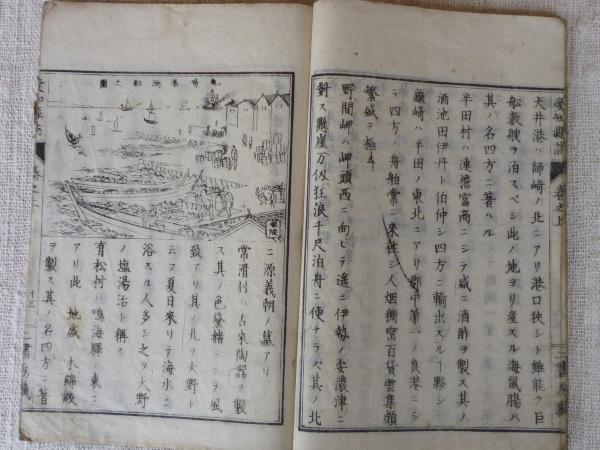 天井港ハ師﨑ノ北ニアリ港口狭シト雖能ク巨
船數艘ヲ泊スベシ此ノ地ヨリ産スル海鼠膓ハ
其ノ名四方ニ著ハル
半田村ハ連檐富商ニシテ盛ニ酒酢ヲ製ス其ノ
酒池田伊丹ト伯仲シ四方ニ輸出スルヿ夥シ
龜﨑ハ半田ノ東北ニアリ郡中第一ノ良港ニシ
テ四方ノ舟舶常ニ來徃シ人烟稠宻百貨雲集頗
繁盛ヲ極ム
野間岬ハ岬頭西ニ向ヒテ遥ニ伊勢ノ安濃津ニ
對ス懸崖万仭狂浪千尺泊舟ニ便ナラズ其ノ北
ニ源義朝ノ墓アリ
常滑村ハ古來陶器ヲ製
ス其ノ色黛赭ニシテ風
致アリ其ノ北ヲ大野ト
云フ夏日來リテ海水ニ
浴スル人多シ之ヲ大野
ノ塩湯治ト稱ス
有松村ハ鳴海驛ノ東ニ
アリ此ノ地盛ニ木綿絞
ヲ製ス其ノ名四方ニ著
愛知縣誌
卷之上
十三